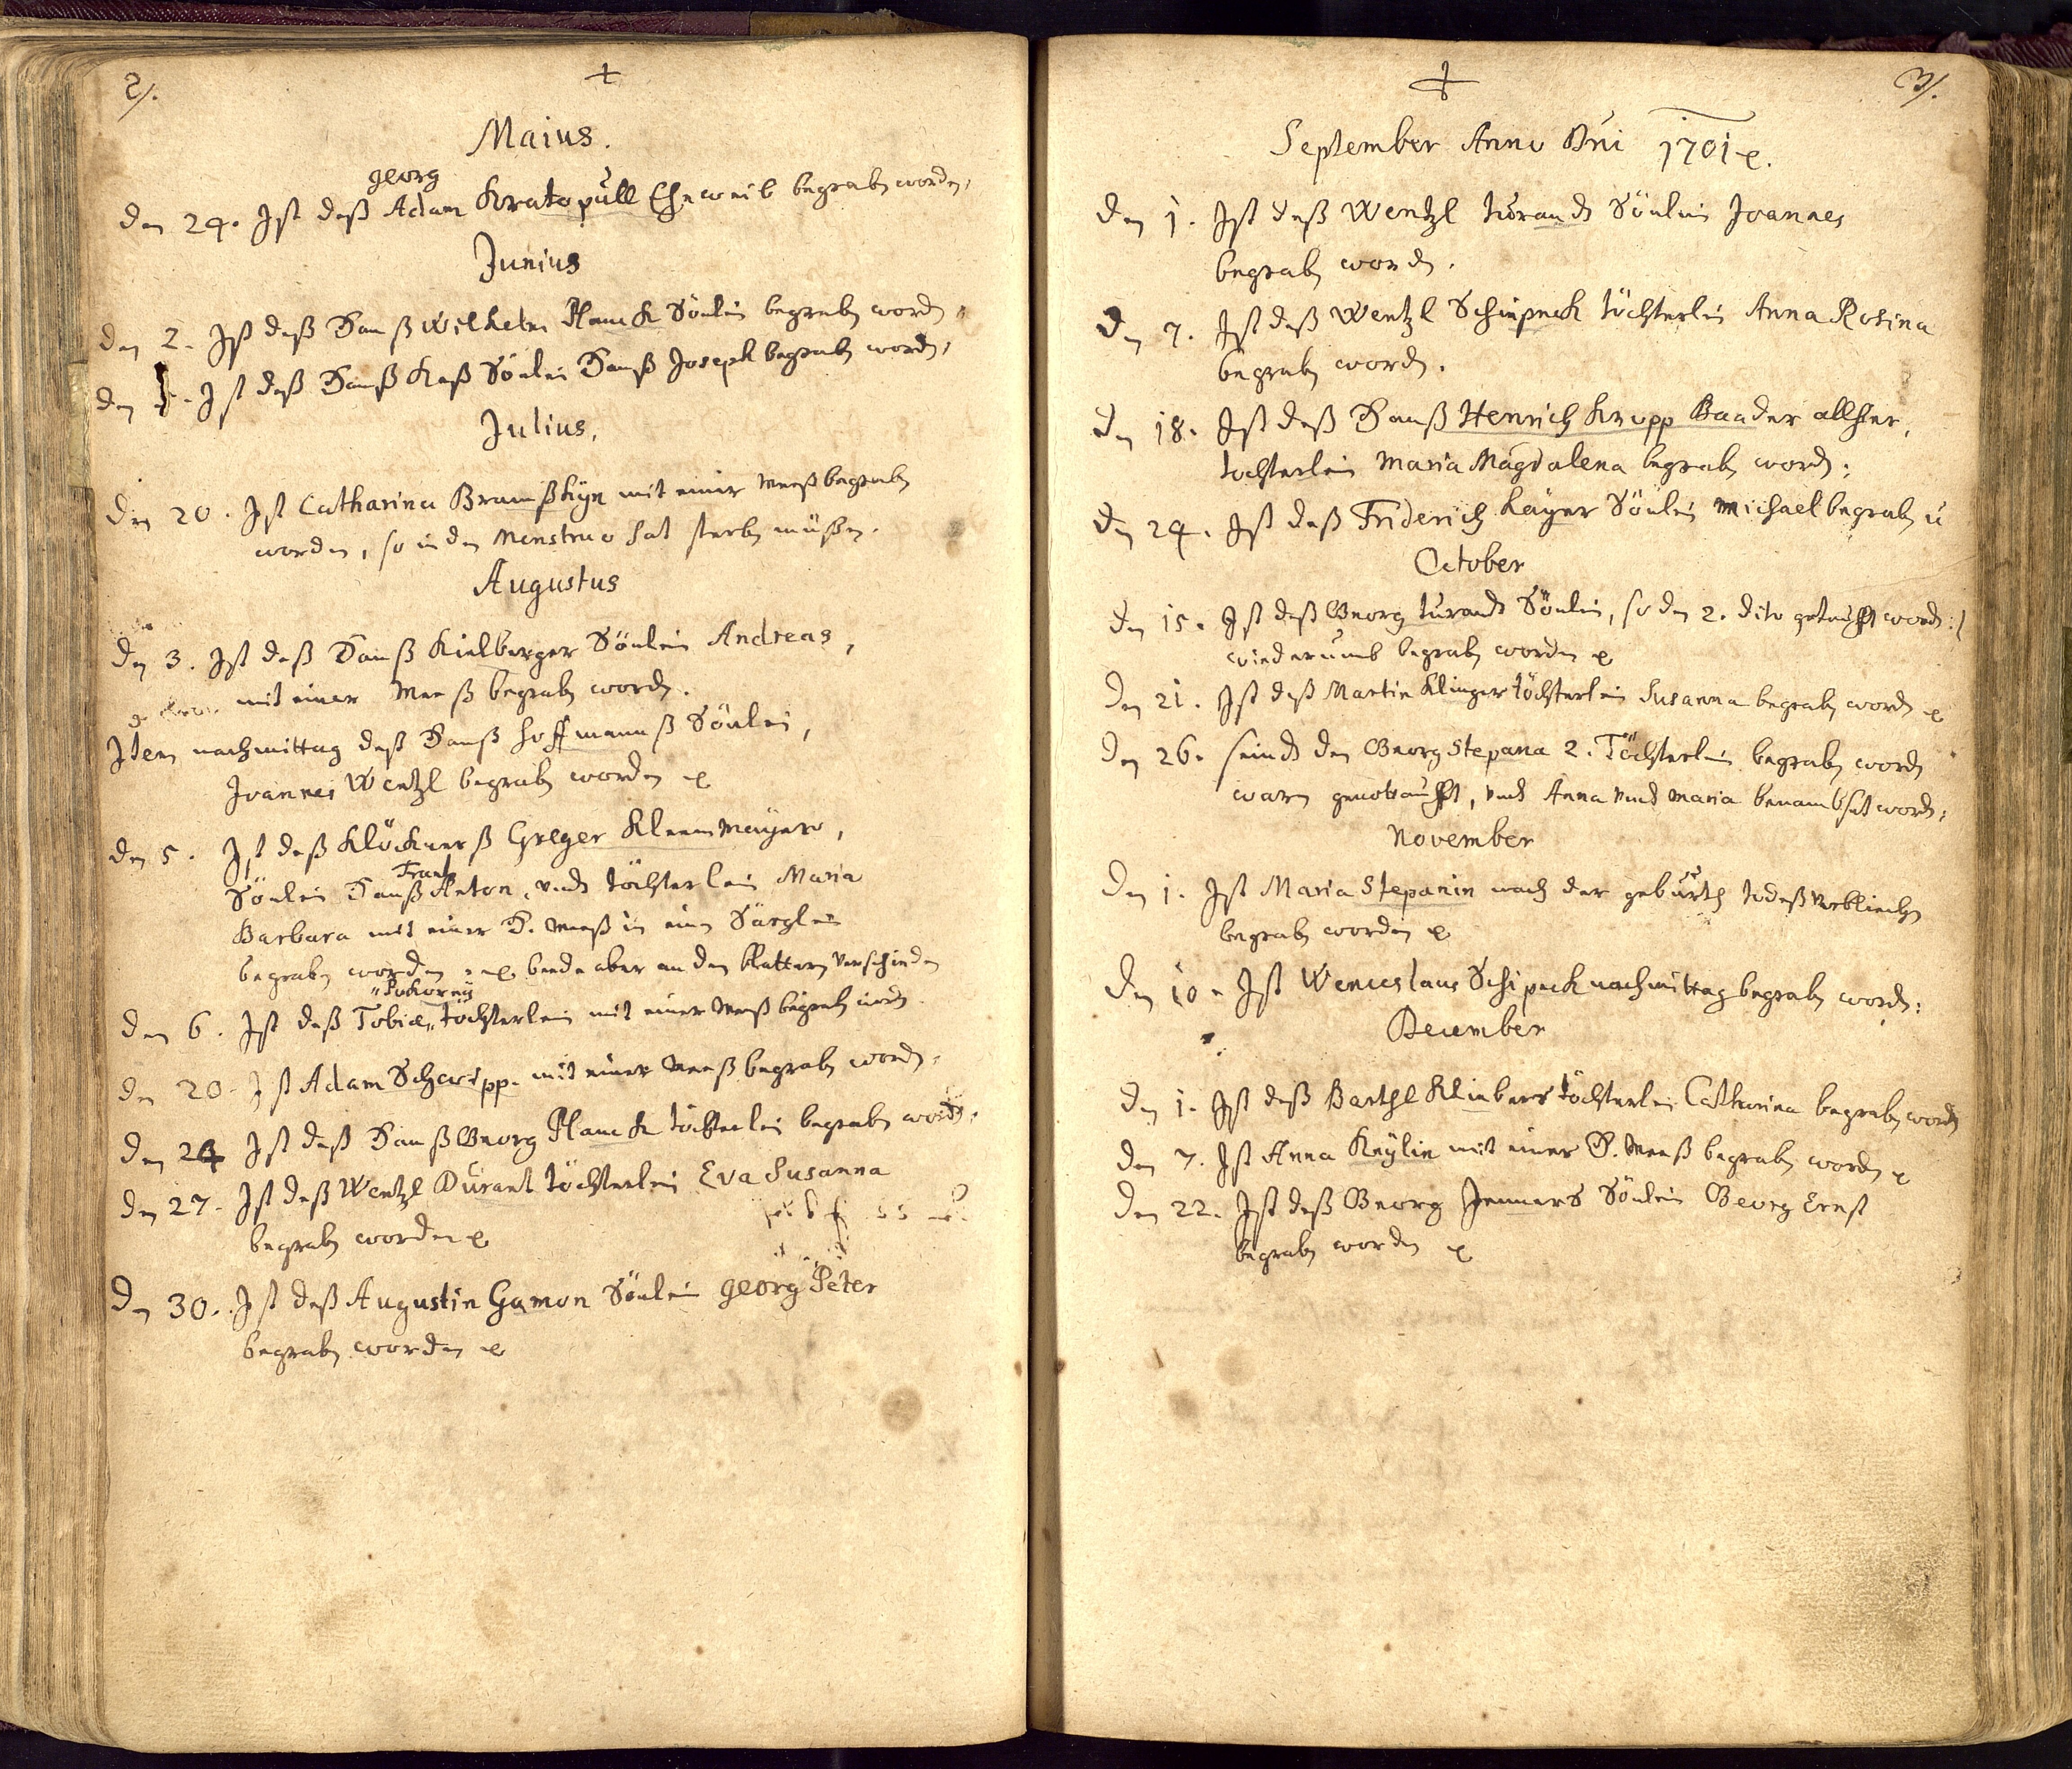 2/.
+
Maius.
georg
Den 24. Ist deß Adam Kratopüll Eheweib begraben worden,
Junius
Den 2. Ist deß Hanß Wilhelm Planck Sönlein begraben worden,
Den Ist deß Hanß Kaß Sönlein Hanß Joseph begraben worden,
Julius,
Den 20. Ist Catharina Bramßkÿn mit einer Meeß begraben
worden, so in den Menstruo hat sterben müßen.
Augustus
Den 3. Ist deß Hanß Kielberger Sönlein Andreas,
mit einer Meeß begraben worden.
Item nachmittag deß Hanß Hoffmannß Sönlein,
Joannes Wentzl begraben worden
Den 5. Ist deß Klöcknerß Greger Kleenmaÿer,
Frantz
Sönlein Hanß Anton, vnd töchterlein Maria
Barbara mit einer H. Meeß in ein Särglein
begraben worden beede aber an den blattern verschieden
"Pokorny
Den 6. Ist deß Tobiæ" töchterlein mit einer Meeß begraben worden
Den 20. Ist Adam Schewpp. mit einer Meeß begraben worden.
Den 24 Ist deß Hanß Georg Planck töchterlein begraben worden.
Den 27. Ist deß Wentzl Dürant töchterlein Eva Susanna
begraben worden
Den 30. Ist deß Augustin Gamon Sönlein georg Peter
begraben worden
3/.
September Anno Dni 1701
Den 1. Ist deß Wentzl turandt Sönlein Joannes
begraben worden.
Den 7. Ist deß Wentzl Schipeck töchterlein Anna Rosina
begraben worden.
Den 18. Ist deß Hanß Henrich Krupp Baader allhier,
tochterlein Maria Magdalena begraben worden:
Den 24. Ist deß Friderich Kaÿer Sönlein Michael begraben
October
Den 15. Ist deß Georg turandt Sönlein, so den 2. dito getaufft worden:/
wiederumb begraben worden
Den 21. Ist deß Martin Klinger töchterlein Susanna begraben worden
Den 26. seind den Georg Stepana 2. Töchterlein begraben worden
waren genottaufft, vnd Anna vnd Maria benambset worden,
November
Den 1. Ist Maria Stepanin nach der gebürth todeß verbliechen
begraben worden
Den 10. Ist Wenceslaus Schipeck nachmittag begraben worden:
December
Den 1. Ist deß Barthl Kliebers töchterlein Catharina begraben worden
Den 7. Ist Anna Keÿlin mit einer H. Meeß begraben worden
Den 22. Ist deß Georg Jenners Sönlein Georg Ernst
begraben worden